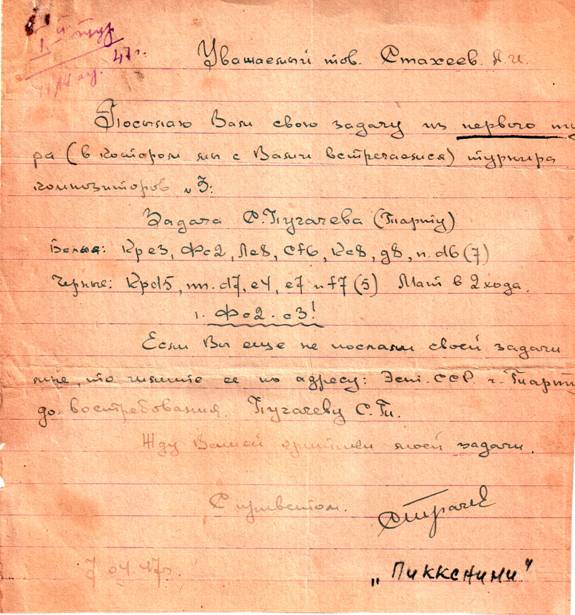 I й тур
47 г.
Уважаемый тов. Стахеев. А.И.
Посылаю Вам свою задачу из первого ту
ра (в котором мы с Вами встречаемся) турнира
композиторов „3.
Задача С.Пугачева (Тарту)
Белые: Кре3, Фс2, Ла8, Cf6, Кс8, g8, п. d6 (7)
Черные: Крd5, пп. d7, e4, e7 и f7 (5) Мат в 2 хода.
1. Фс2-с3!
Если Вы еще не послали своей задачи
мне, то шлите ее по адресу: Эст. ССР г. Тарту
до востребования. Пугачеву С.П.
Жду Вашей критики моей задачи.
С приветом.
7 04 47г.
„Пиккенини"